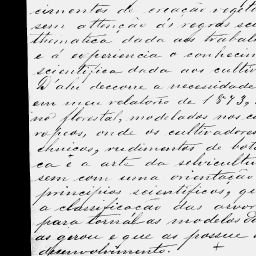 cimentos de creacão regula
sem attenção ás regras sci
thematica dada aos trabalh
e a experiencia e conhecim
scientifica dada aos cultiv
D'ahi decorre a necessidade
em meu relatorio de 1873,
no florestal, modelados nos es
ropeos, onde os cultivadores
chnicos, rudimentos de bota
ca e a arte da selvicultu
sem com uma orientação
principios scientificos, qu
a classificacão das arvor
para tornal-as modelos do
as gerou e que as possue
desenvolvimento. +